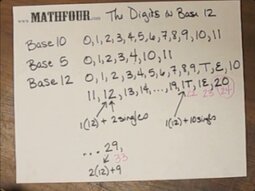 www.MATHFOUR.com The Digits in Base 12
Base 10 0,1,2,3,4,5,6,7,8,9,10,11
Base 5 0,1,2,3,4,10,11
Base 12 0,1,2,3,4,5,6,7,8,9,T,E,10
11,12,13,14,...,19,1T,1E,20
22 23 24
1(12)+2 singles 1(12)+10 singles
... 29,
33
2(12)+9